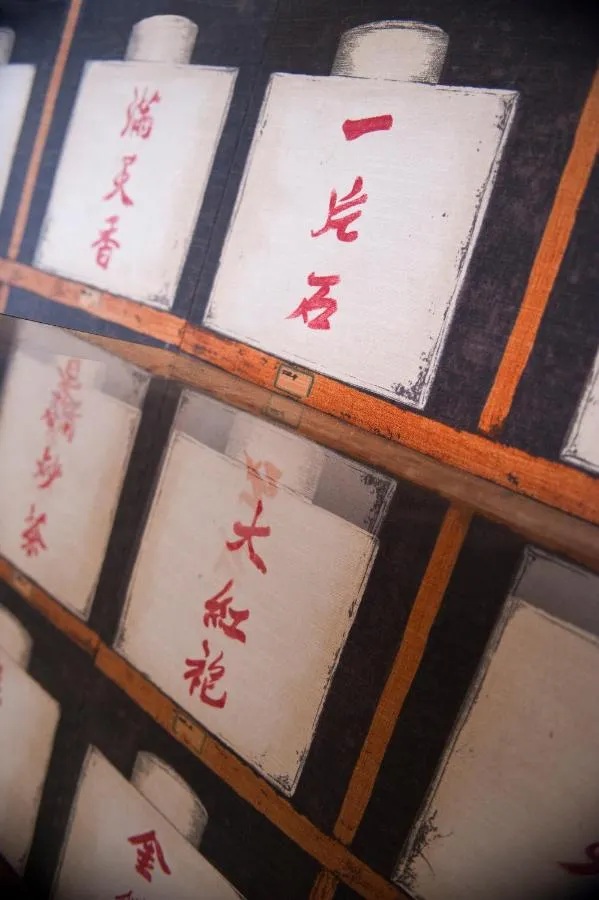 滿天香
一片石
茶
大紅袍
金